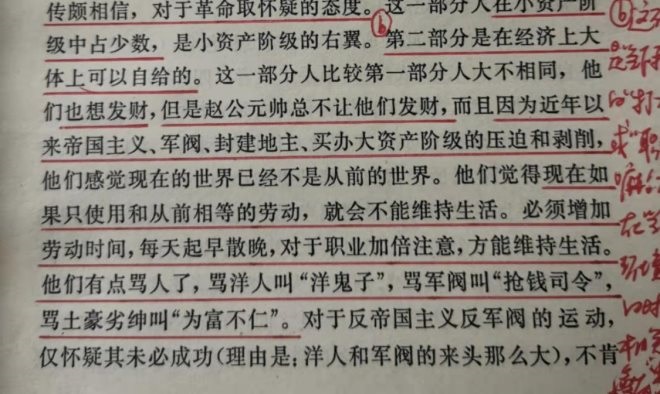 传颇相信，对于革命取怀疑的态度。这一部分人在小资产阶
级中占少数，是小资产阶级的右翼。第二部分是在经济上大
体上可以自给的。这一部分人比较第一部分人大不相同，他
们也想发财，但是赵公元帅总不让他们发财，而且因为近年以
来帝国主义、军阀、封建地主、买办大资产阶级的压迫和剥削，
他们感觉现在的世界已经不是从前的世界。他们觉得现在如
果只使用和从前相等的劳动，就会不能维持生活。必须增加
劳动时间，每天起早散晚，对于职业加倍注意，方能维持生活。
他们有点骂人了，骂洋人叫“洋鬼子”，骂军阀叫“抢钱司令”，
骂土豪劣绅叫“为富不仁”。对于反帝国主义反军阀的运动，
仅怀疑其未必成功（理由是：洋人和军阀的来头那么大），不肯
b
b